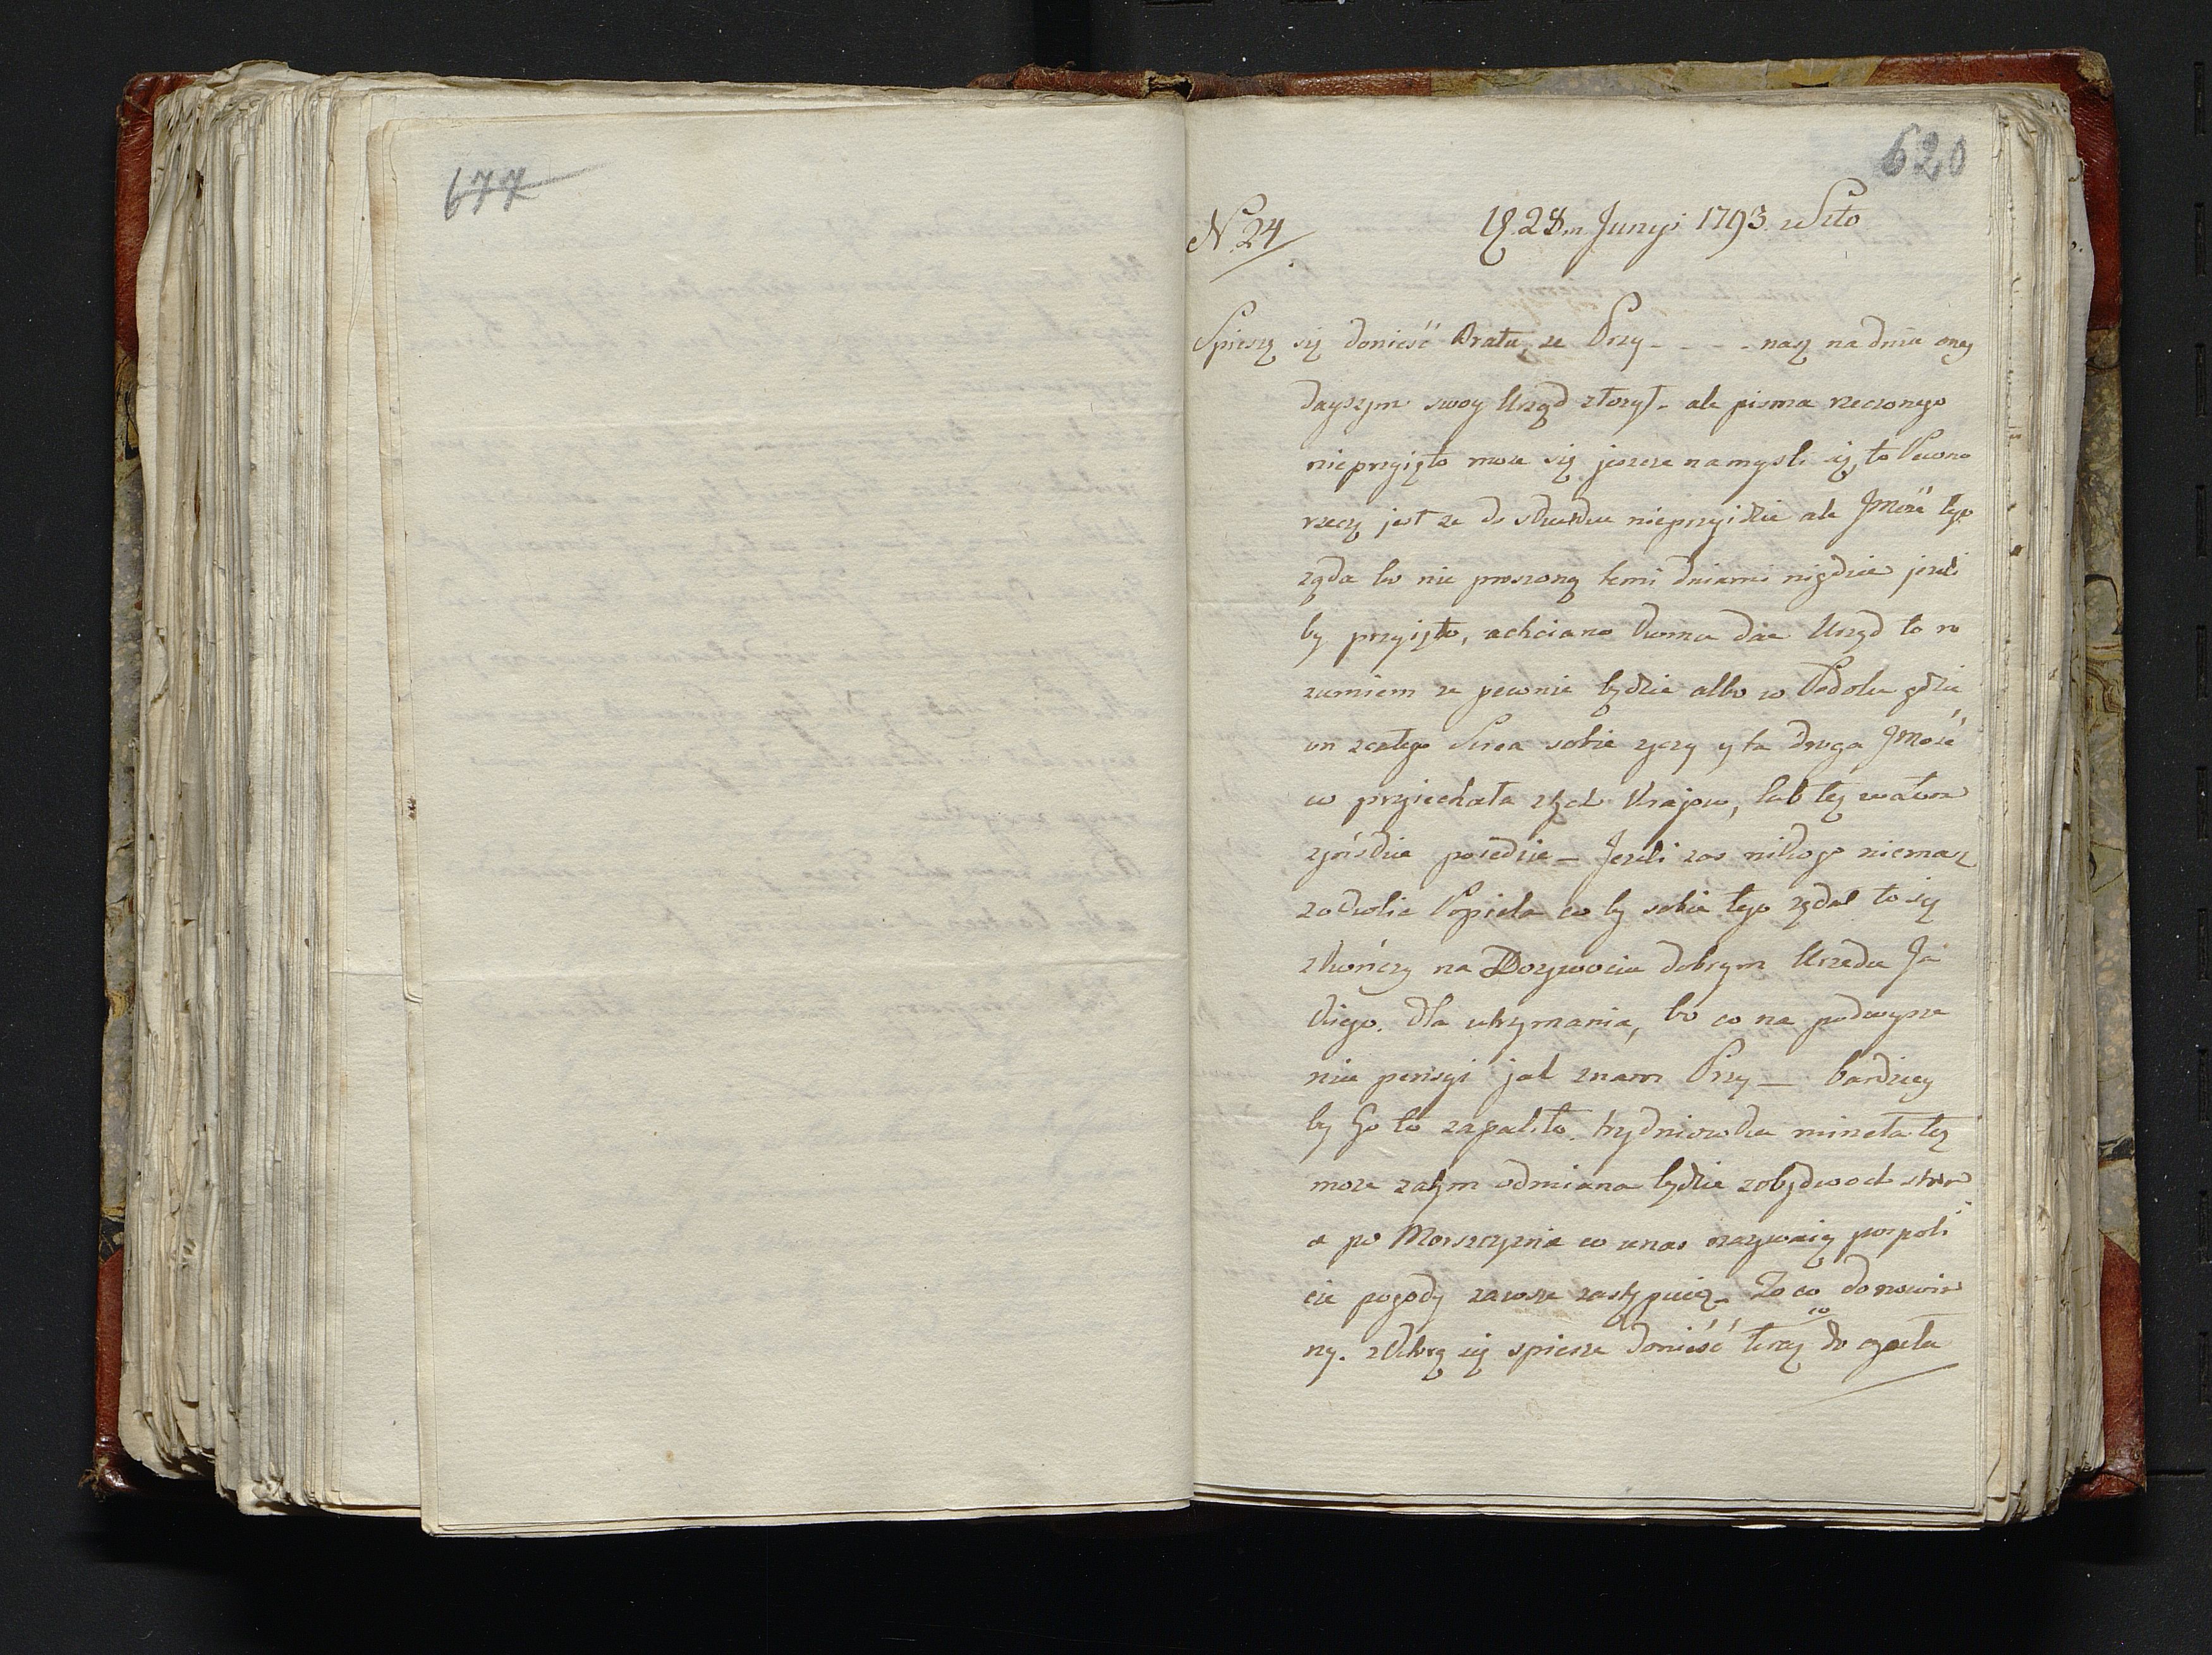 677
620
N. 24
D. 28 m Junyi 1793 z Szło
Spieszę się donieść Bratu, ze Przy- - - - nasz na dniu oneg
dayszym swoy Urząd złozył - ale pisma rzeczonego
nieprzyięto moze się jeszcze namysli się, to Pewna
rzecz jest ze do skutku nieprzyidzie ale Jmość tego
ząda bo nie proszoną temi dniami nigdzie jezeli
by przyięto, a chciano komu dać Urząd to ro
zumiem ze pewnie będzie albo w Podolu gdzie
on z całego Serca sobie zyczy y ta druga Jmość
co przyiechała z tych Krajow, lub tez
poiedzie - Jezeli zas nikogo niemasz
w okolic Popiela co by sobie tego ządał to się
zkończy na Dozywociu dobrym Urzedu Ja
kiego. dla utrzymania, bo co na podwyzsze
nie pensyi jak znam Przy - bardziey
by Go to zapaliło. trydniowka mineła tez
moze zatym odmiana będzie z obydwoch stron
a po Marszczyznie co u nas nazywaią pospoli
cie pogody zawsze zastępuią - To co do nowin
ny. z Którą się spiesze donieść teraz do
co